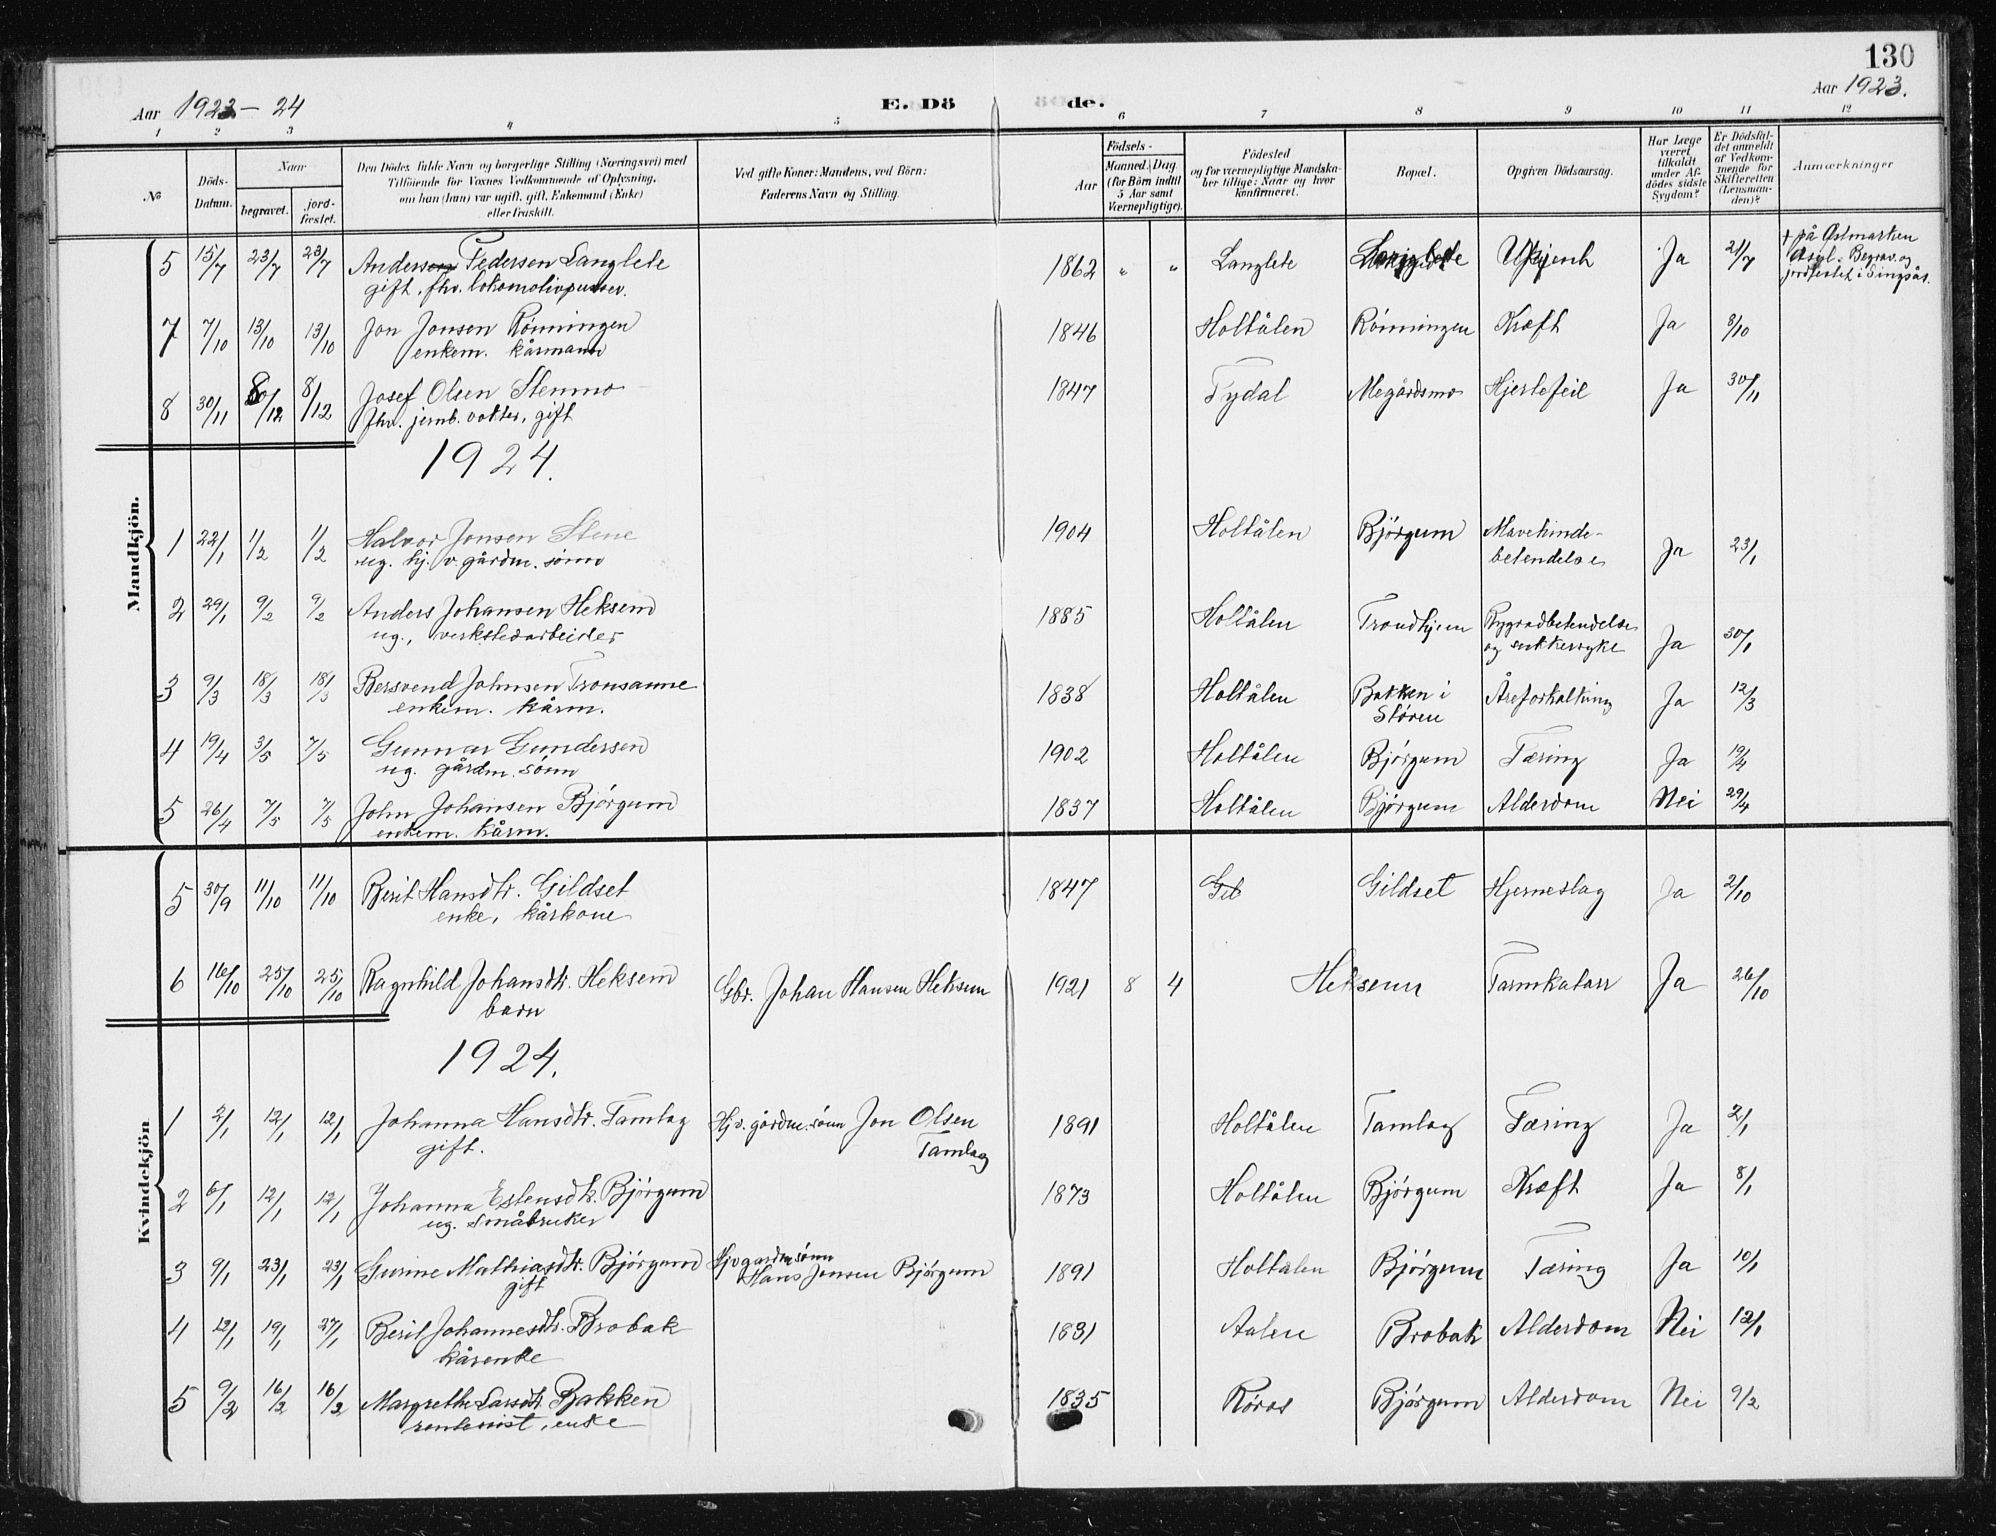 130
Aar 1923 - 24
E. Dö de.
Aar 1923.
1 2 3 4 5 6 7 8 9 10 11 12
№
Döds-Datum.
Naar
begravet.
jord-fæstet.
Den Dödes fulde Navn og borgerlige Stilling (Næringsvei) med
Tilföiende for Voxnes Vedkommende af Oplysning,
om han (hun) var ugift, gift, Enkemand (Enke)
eller fraskilt.
Ved gifte Koner: Mandens, ved Börn:
Faderens Navn og Stilling.
Aar
Födsels-
Maaned. Dag
(for Börn indtil
5 Aar samt
Værnepligtige).
Födested
og for værnepligtige Mandska-
ber tillige: Naar og hvor
konfirmeret.
Bopæl.
Opgiven Dödsaarsag.
Har Læge
været
tilkaldt
under Af-
dödes sidste
Sygdom?
Er Dödsfal-
det anmeldt
af Vedkom-
mende for
Skifteretten
(Lensman-
den)?
Anmærkninger
Mandkjön.
5 15/7 23/7 23/7 Anderson Pedersen Langlete 1862 " " Langlete Langlete Ukjent Ja 21/7 † på Østmarken
gift, fhv. lokomotivpusser. Asyl. Begrav. og
jordfestet i Singsås.
7 7/10 13/10 13/10 Jon Jonsen Rönningen 1846 Holtålen Rönningen Kræft Ja 8/10
enkem. kårmann
8 30/11 8/12 8/12 Josef Olsen Stenmo 1847 Tydal Megårdsmo Hjertefeil Ja 30/11
fhv. jernb. vokter, gift
1924.
1 22/1 1/2 1/2 Halvor Jonsen Stene 1904 Holtålen Björgum Mavehinde-
ug. hj. v. gårdm. sönn betendelse Ja 23/1
2 29/1 9/2 9/2 Anders Johansen Heksem 1885 Holtålen Trondhjem Rygradbetendelse
ug., verkstedarbeider og sukkersyke Ja 30/1
3 9/3 18/3 18/3 Bersvend Johnsen Tronsanne 1838 Holtålen Bakken i Åreforkalkning Ja 12/3
enkem. kårm. Stören
4 19/4 3/5 7/5 Gunnar Gundersen 1902 Holtålen Björgum Tæring Ja 19/4
ug. gårdm. sönn
5 26/4 7/5 7/5 John Johansen Björgum 1837 Holtålen Björgum Alderdom Nei 29/4
enkem. kårm.
Kvindekjön
5 30/9 11/10 11/10 Berit Hansdtr. Gildset 1847 Gil Gildset Hjerneslag Ja 2/10
enke, kårkone
6 16/10 25/10 25/10 Ragnhild Johansdtr. Heksem Gbr. Johan Hansen Heksem 1921 8 4 Heksem Tarmkatarr Ja 26/10
barn
1924.
1 2/1 12/1 12/1 Johanna Hansdtr. Tamlag Hjv. gårdm. sönn Jon Olsen 1891 Holtålen Tamlag Tæring Ja 2/1
gift. Tamlag
2 6/1 12/1 12/1 Johanna Estensdtr. Björgum 1873 Holtålen Björgum Kræft Ja 8/1
ug. småbruker
3 9/1 23/1 23/1 Gurine Mathiasdtr. Björgum Hjv gardm sönn
gift Hans Jensen Björgum 1891 Holtålen Björgum Tæring Ja 10/1
4 12/1 19/1 27/1 Berit Johannesdtr. Brobak 1831 Aalen Brobak Alderdom Nei 12/1
kårenke
5 9/2 16/2 16/2 Margrethe Larsdtr. Bakken 1835 Röros Björgum Alderdom Nei 9/2
rentenist, enke